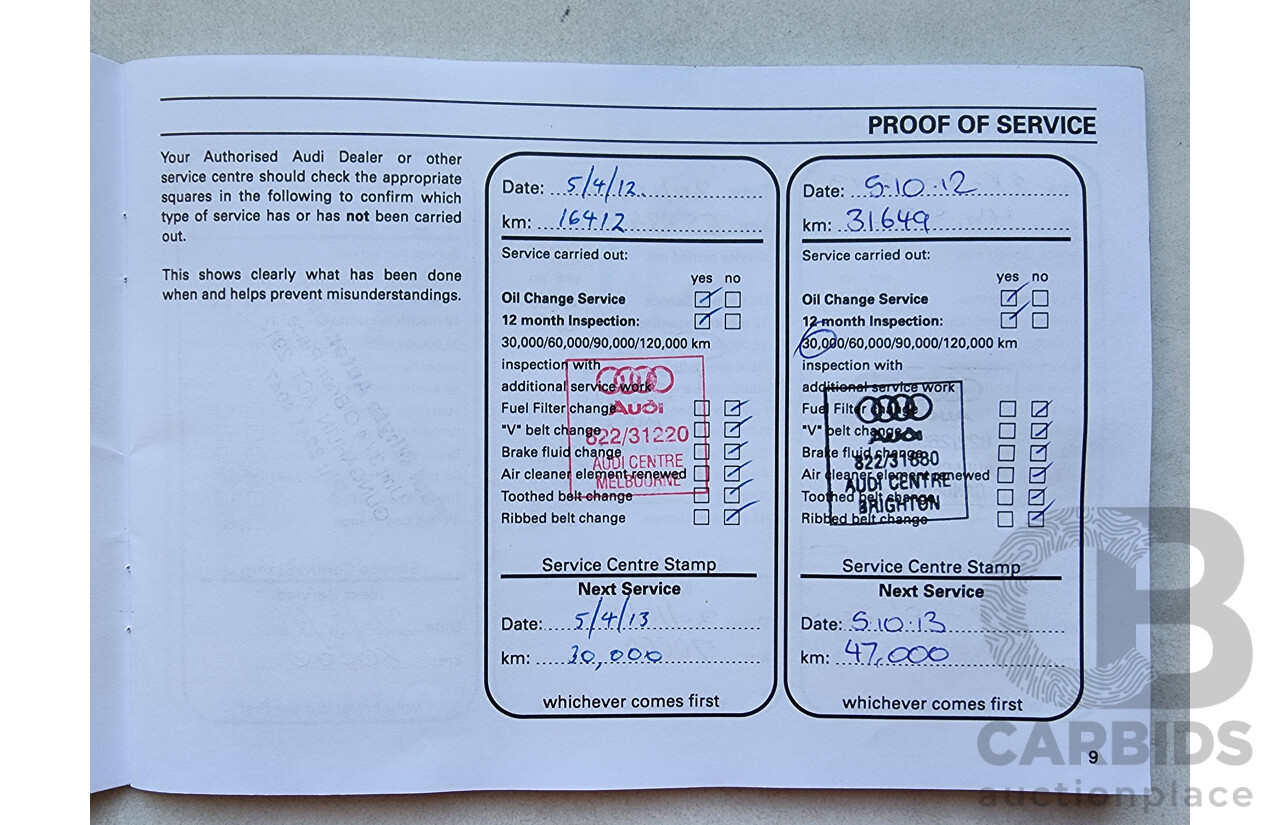 PROOF OF SERVICE
Your Authorised Audi Dealer or other
service centre should check the appropriate
squares in the following to confirm which
type of service has or has not been carried
out.
This shows clearly what has been done
when and helps prevent misunderstandings.
Date: 5/4/12
km: 16412
Service carried out:
yes no
Oil Change Service
12 month Inspection:
30,000/60,000/90,000/120,000 km
inspection with
additional service work
Fuel Filter change
"V" belt change
Brake fluid change
Air cleaner element renewed
Toothed belt change
Ribbed belt change
Audi
822/31220
AUDI CENTRE
MELBOURNE
Service Centre Stamp
Next Service
Date: 5/4/13
km: 30,000
whichever comes first
Date: 5.10.12
km: 31649
Service carried out:
yes no
Oil Change Service
12 month Inspection:
30,000/60,000/90,000/120,000 km
inspection with
additional service work
Fuel Filter change
"V" belt change
Brake fluid change
Air cleaner element renewed
Toothed belt change
Ribbed belt change
Audi
AUDI CENTRE
BRIGHTON
Service Centre Stamp
Next Service
Date: 5.10.13
km: 47,000
whichever comes first
9
CB
CARBIDS
auctionplace